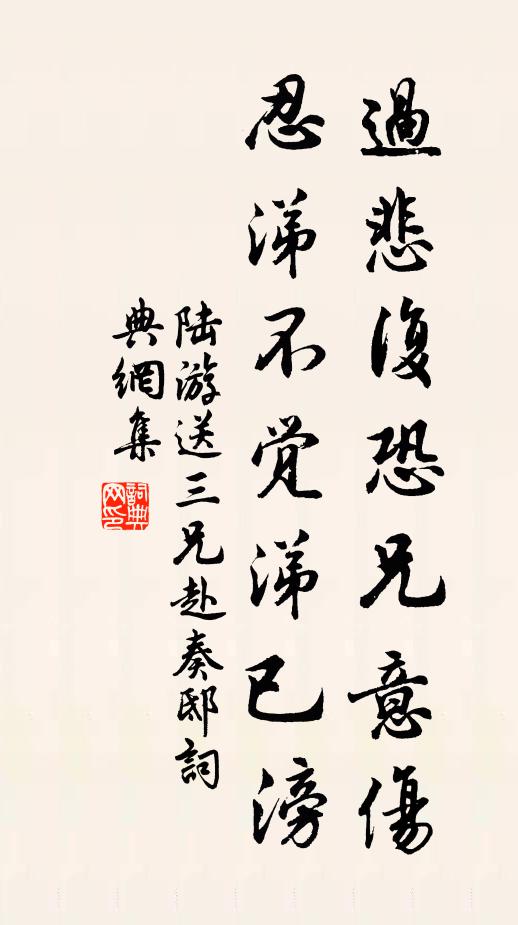 過悲復恐兄意傷
忍涕不觉涕已滂
陆游送三兄赴奏邸詞
典網集
詞典网印